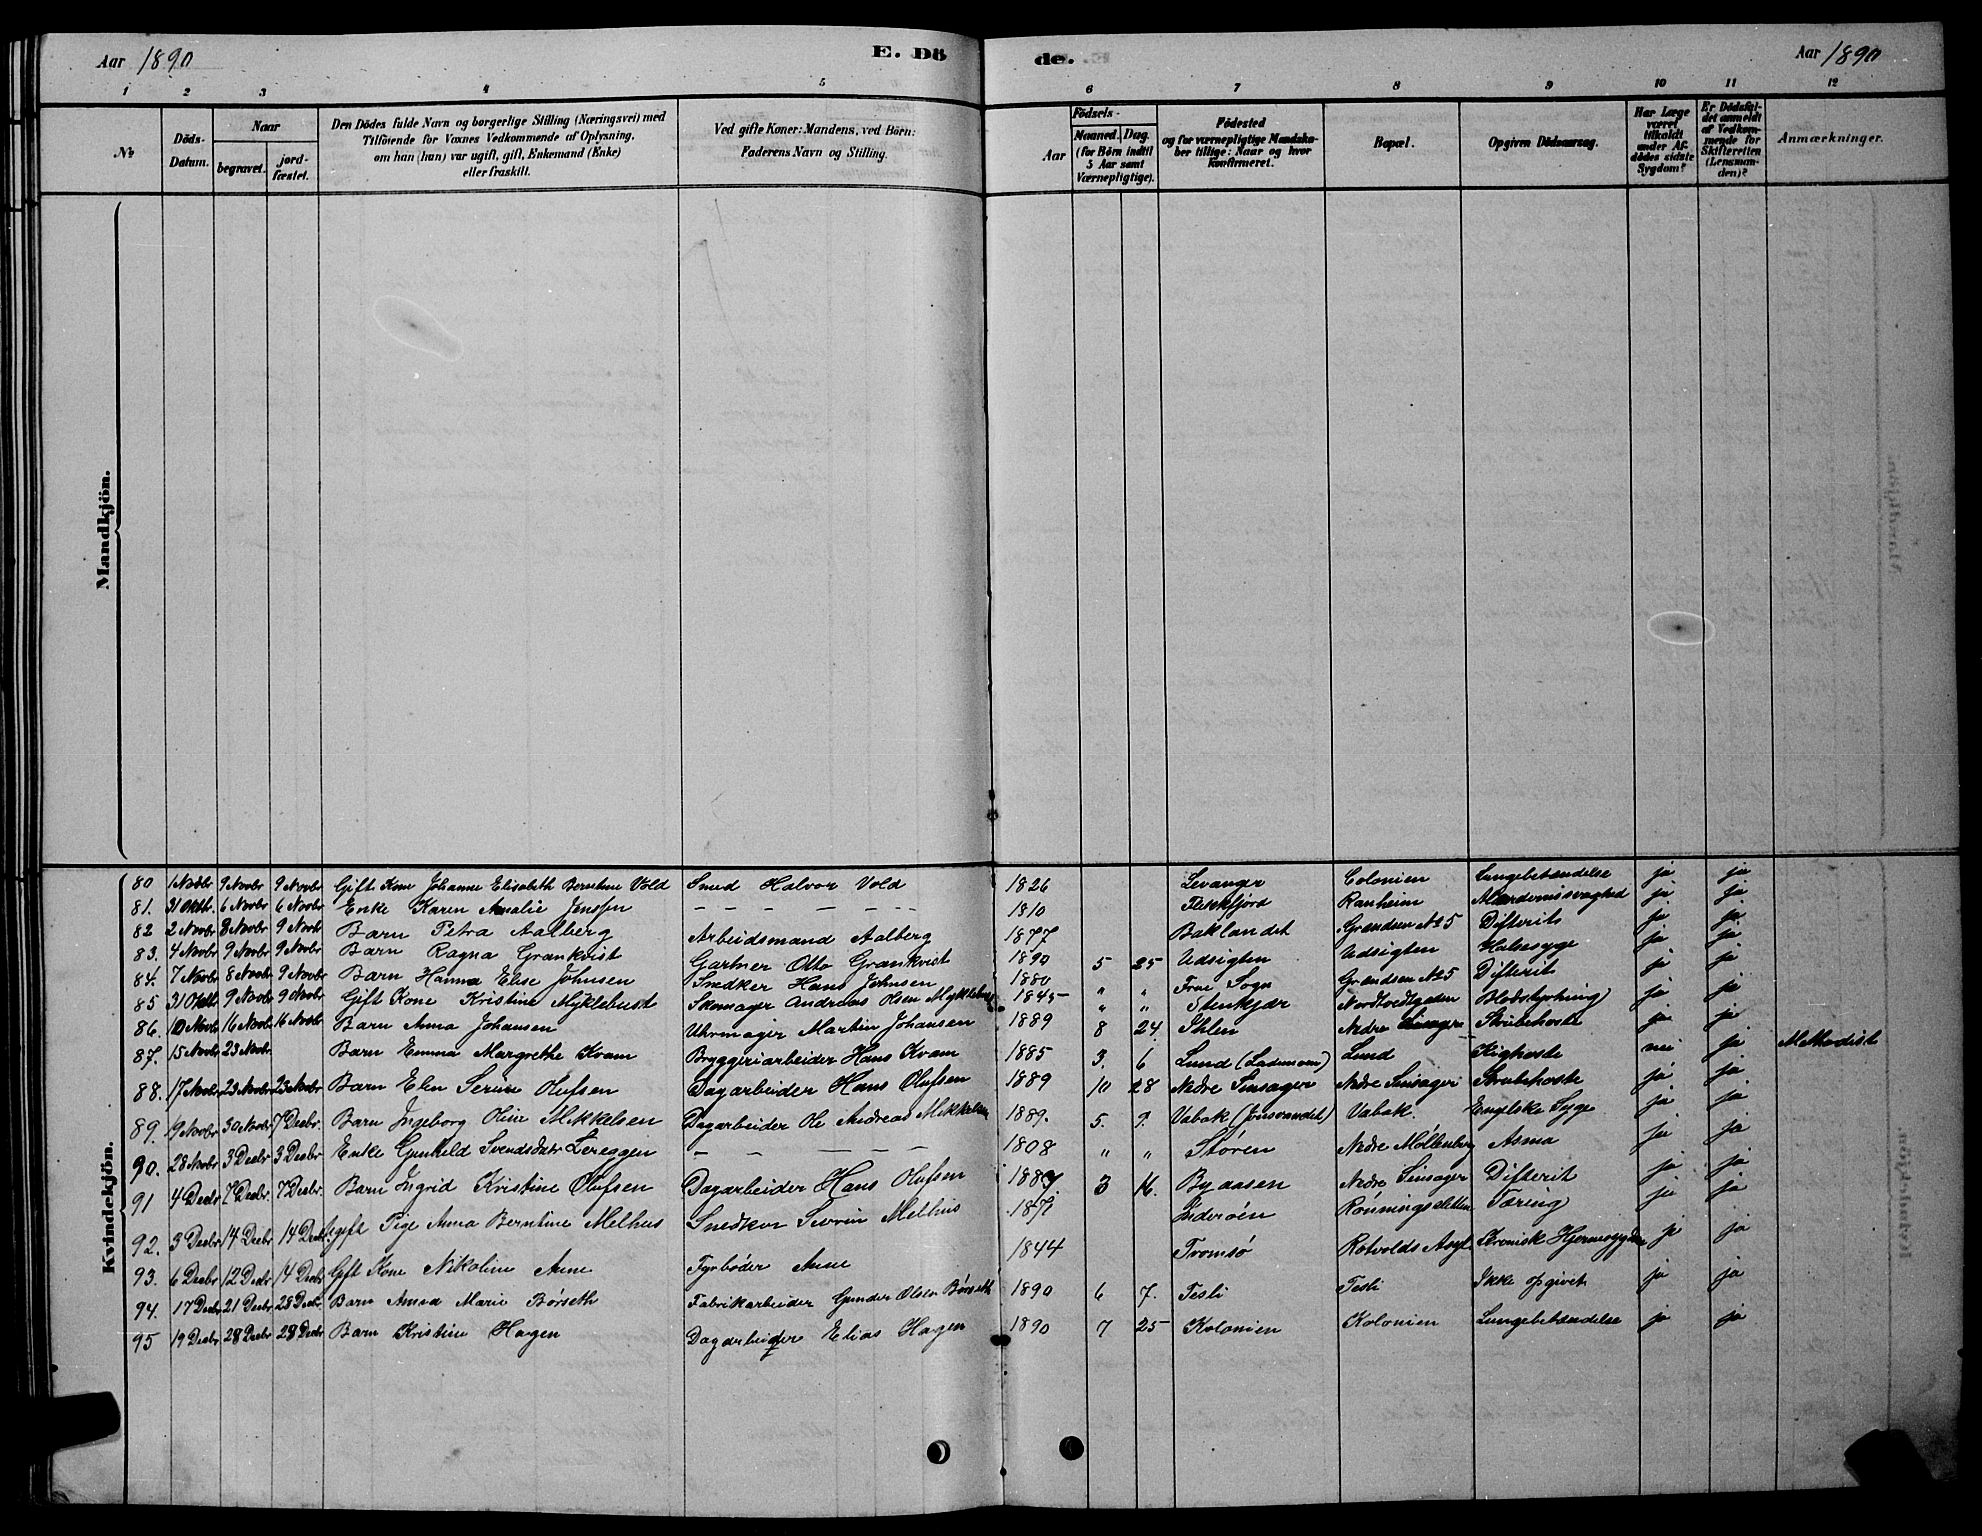 Aar 1890 E. Dö
de. Aar 1890
1 2 3 4 5 6 7 8 9 10 11 12
№
Döds-Datum.
Naar
begravet.
jord-fæstet.
Den Dödes fulde Navn og borgerlige Stilling (Næringsvei) med
Tilföiende for Voxnes Vedkommende af Oplysning,
om han (hun) var ugift, gift, Enkemand (Enke)
eller fraskilt.
Ved gifte Koner: Mandens, ved Börn:
Faderens Navn og Stilling.
Födsels-
Aar
Maaned. Dag.
(for Börn indtil
5 Aar samt
Værnepligtige).
Födested
og for værnepligtige Mandska-
ber tillige: Naar og hvor
konfirmeret.
Bopæl.
Opgiven Dödsaarsag.
Har Læge
været
tilkaldt
under Af-
dödes sidste
Sygdom?
Er Dödsfal-
det anmeldt
af Vedkom-
mende for
Skifteretten
(Lensman-
den)?
Anmærkninger.
Mandkjön.
Kvindekjön.
80 1 Novbr 9 Novbr 9 Novbr Gift Kone Johanna Elisabeth Berntine Vold Smed Halvor Vold 1826 Levanger Colonien Lungebetændelse ja ja
81. 31 Oktb. 6 Novbr 6 Novbr Enke Karen Amalie Jenssen – – – – – – – 1810 Flekkfjord Ranheim Alderdomssvaghed ja ja
82 2 Novbr 8 Novbr 9 Novb Barn Petra Aalberg Arbeidsmand Aalberg 1877 Baklandet Grændsen № 5 Difterit ja ja
83. 4 Novbr 9 Novbr 9 Novbr Barn Ragna Grankvist Gartner Otto Grankvist 1890 5 25 Udsigten Udsigten Halssyge ja ja
84. 7 Novbr 8 Novbr 9 Novbr Barn Hanna Elise Johnsen Snedker Hans Johnsen 1880 " " Frue Sogn Grændsen № 5 Difterit ja ja
85 31 Oktb 9 Novbr 9 Novbr Gift Kone Kristine Myklebust Skomager Andreas Olsen Myklebust 1845 " " Stenkjær Blodstyrtning ja ja
86. 10 Novbr 16 Novbr 16 Novbr Barn Anna Johansen Uhrmager Martin Johansen 1889 8 24 Ihlen Nedre Strubehoste ja ja
87. 15 Novbr 23 Novbr Barn Emma Margrethe Kvam Bryggeriarbeider Hans Kvam 1885 3. 6 Lund (Lademoen) Lund Kighoste nei ja Methodist
88. 17 Novbr 23 Novbr 23 Novbr Barn Elen Serine Olufsen Dagarbeider Hans Olufsen 1889 10 28 Nedre Sinsager Nedre Sinsager Strubehoste ja ja
89. 9 Novbr 30 Novbr 7 Decbr. Barn Ingeborg Oline Mikkelsen Dagarbeider Ole Andreas Mikkelsen 1889. 5. 9. Vabak Vabak. Engelske Syge ja ja
90. 28 Novbr 3 Decbr 3 Decbr Enke Gunhild Svendsdatr – – – – – 1808 " " Støren Nedre Møllenberg Asma ja ja
91 4 Decbr 7 Decbr. 7 Decbr. Barn Ingrid Kristine Olufsen Dagarbeider Hans Olufsen 3 16. Byaasen Nedre Sinsager Difterit ja ja
92. 3 Decbr 14 Decbr 14 Decbr. Ugift Pige Anna Berntine Melhus Snedker Sivrin Melhus 1871 Inderøen Rønningsletten Tæring ja ja
93. 6 Decbr 12 Decbr 14 Decbr Gift Kone Nikoline Aune Fyrbøder Aune 1844 Tromsø Rotvolds Asyl Kronisk Hjernesygdom ja ja
94. 17 Decbr 21 Decbr 28 Decbr. Barn Anna Marie Børseth Fabrikarbeider Gunder Olsen Børseth 1890 6 7. Tesli Tesli Ikke opgivet ja ja
95 19 Decbr 28 Decbr 28 Decbr Barn Kristine Hagen Dagarbeider Elias Hagen 1890 7 25 Kolonien Kolonien Lungebetændelse ja ja